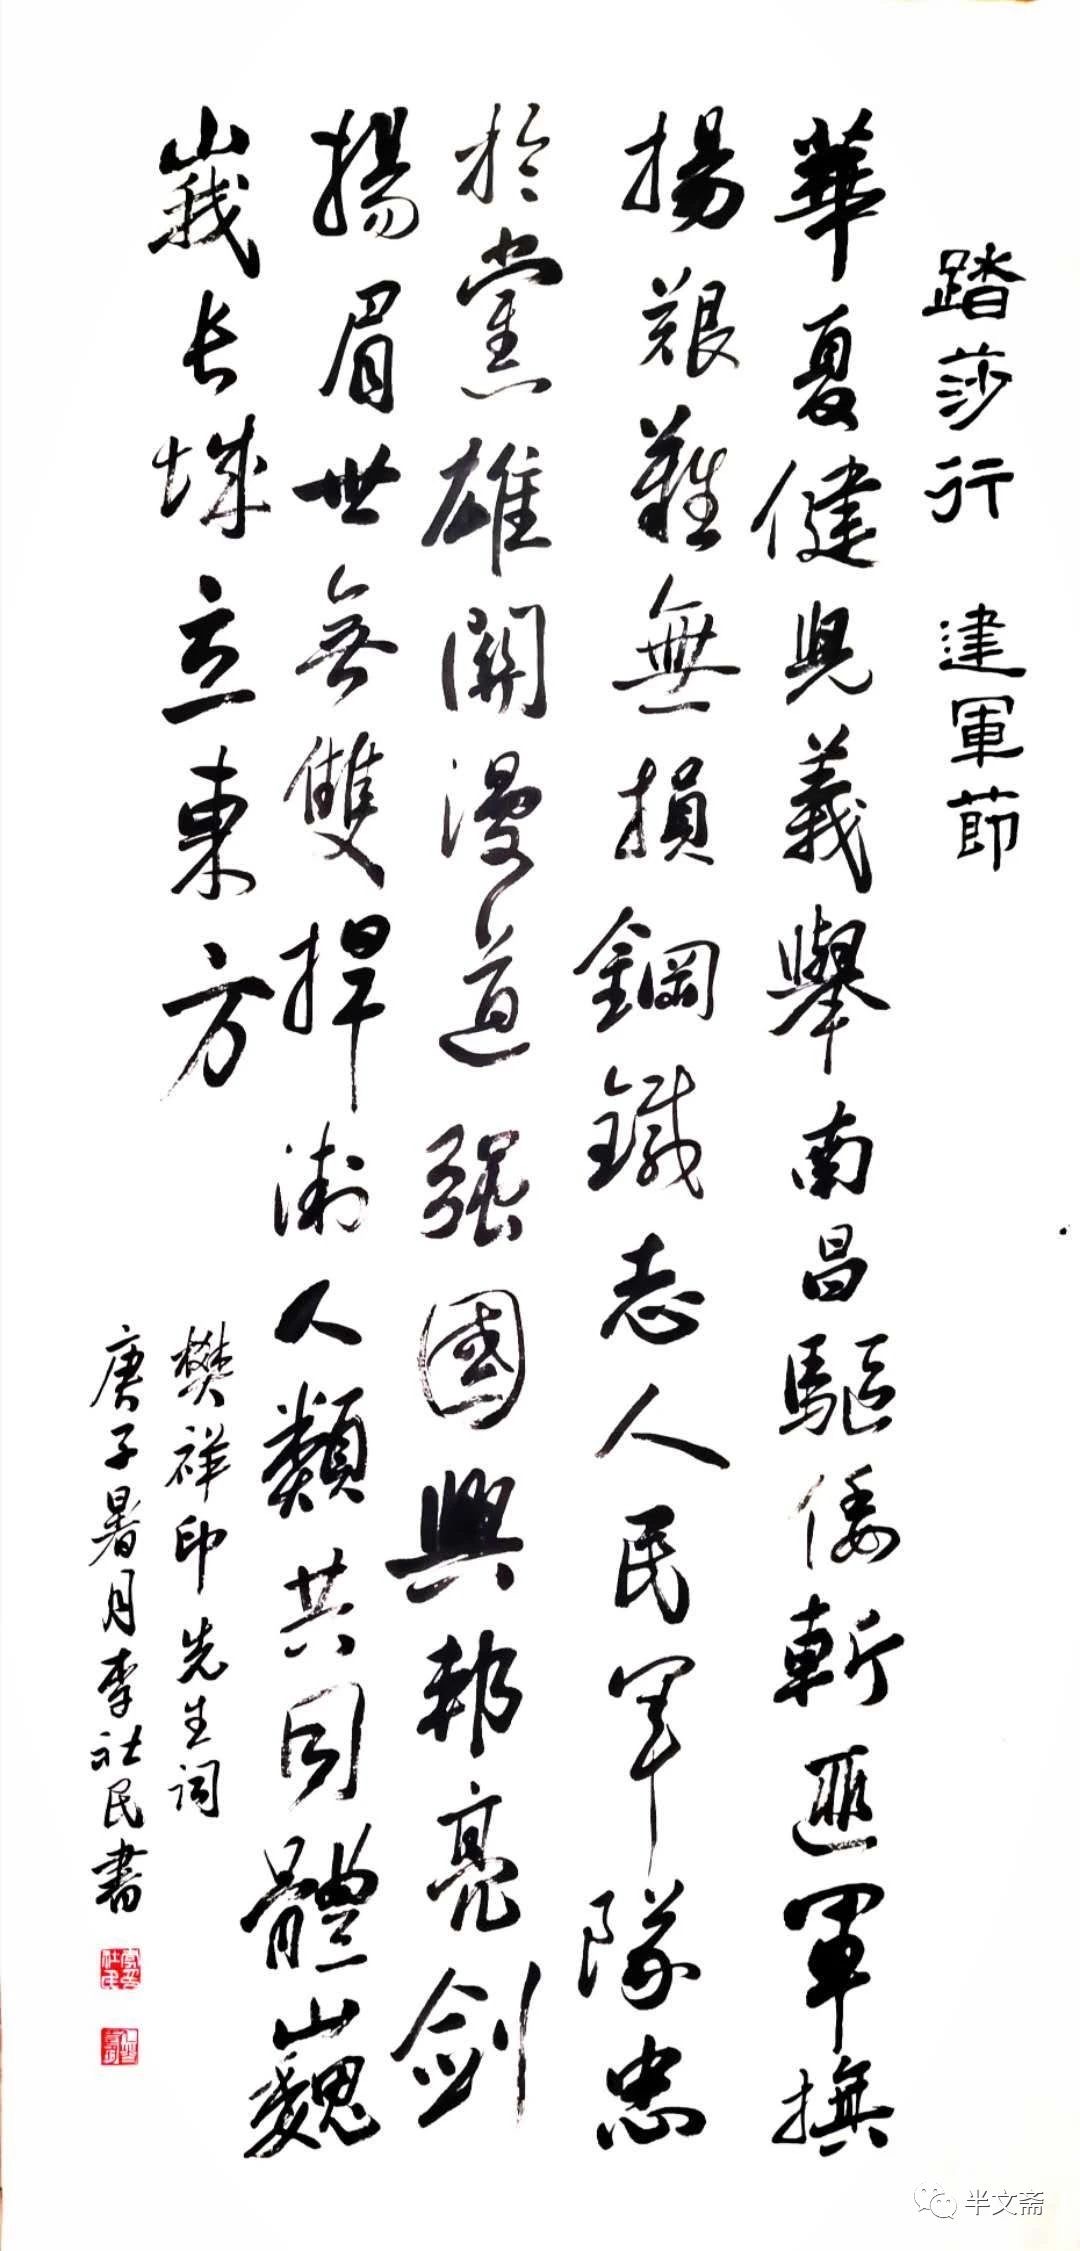 踏莎行 建軍節
華夏健児義舉南昌驅倭斬匪軍撫
揚艱難無損鋼鐵志人民军隊忠
於黨雄關漫道强國興邦亮剑
揚眉世無雙捍衛人類共同體巍
峩长城立東方
樊祥印先生词
庚子暑月李社民書
半文斋